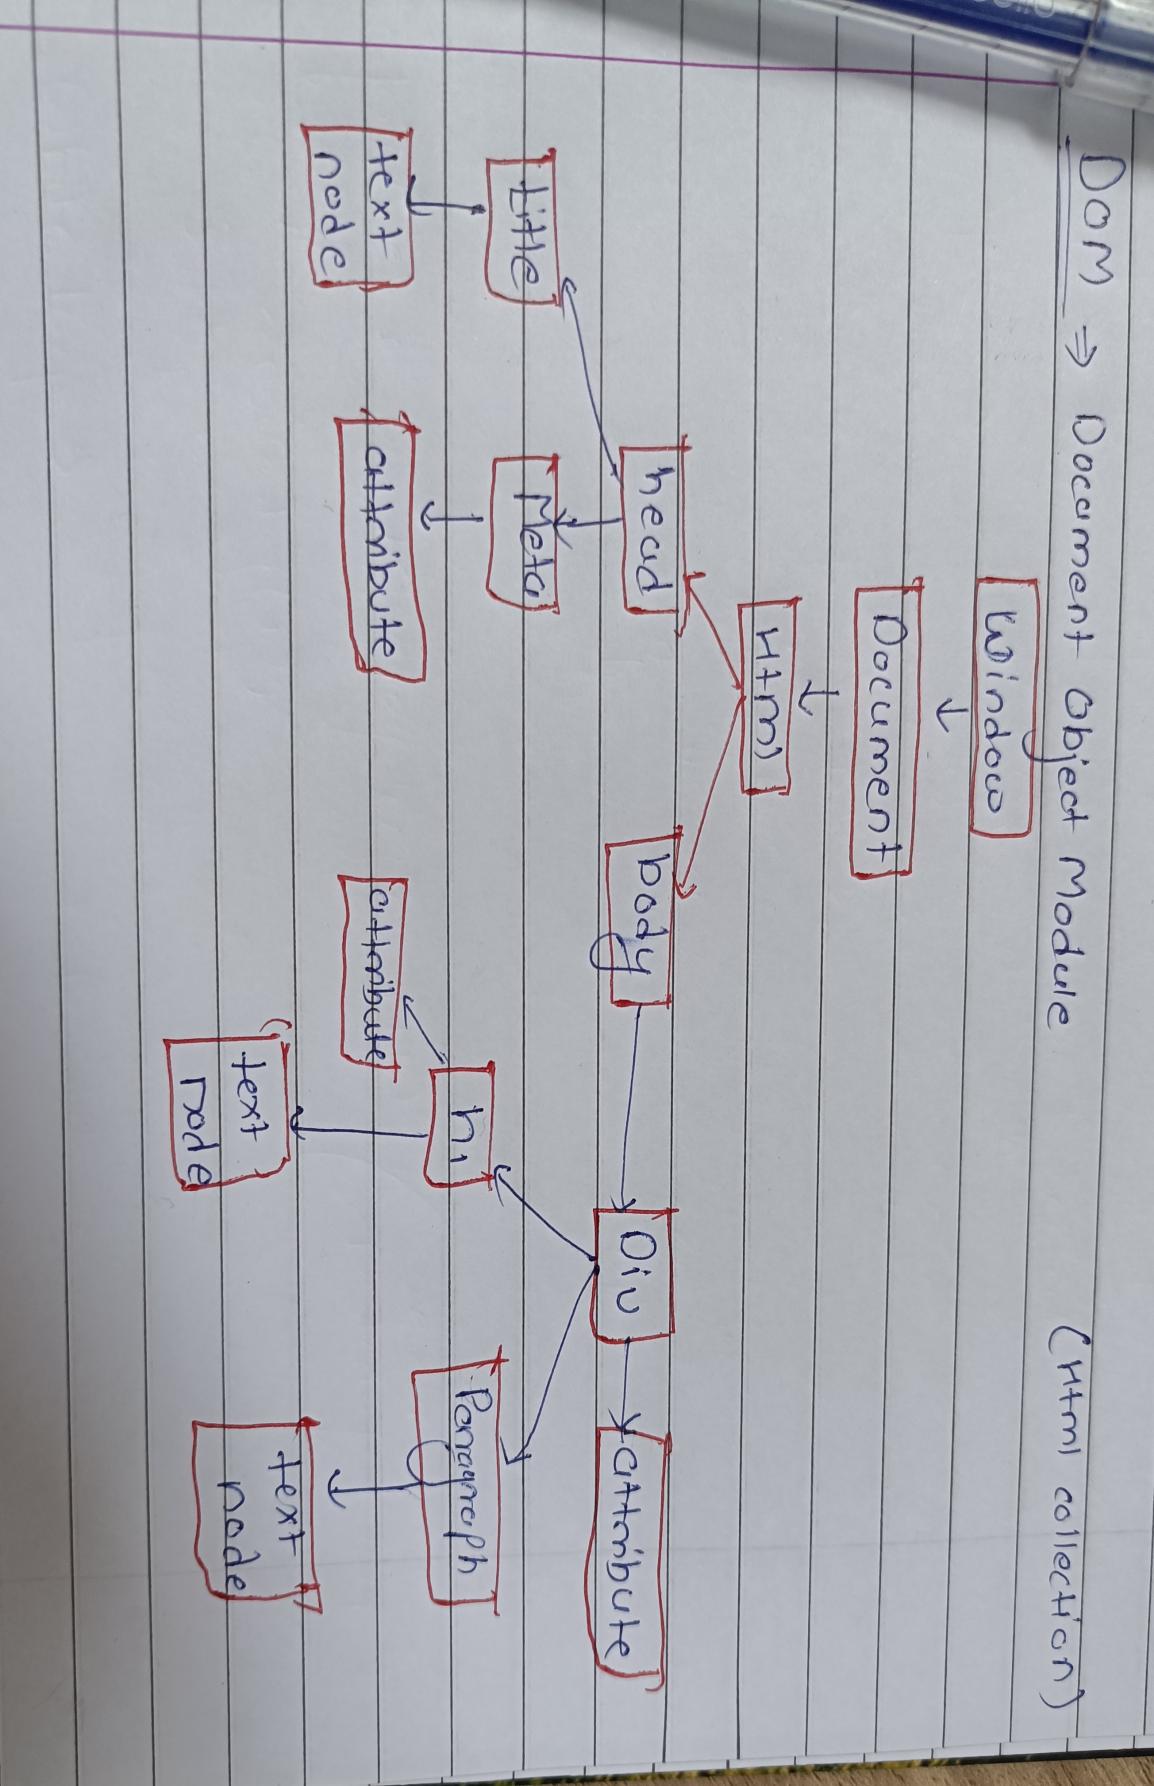 DOM ⇒ Document Object Module (Html collection)
Window
Document
Html
head body Div attribute
title Meta
h1 Paragraph
text
node
attribute
attribute
text
node
text
node